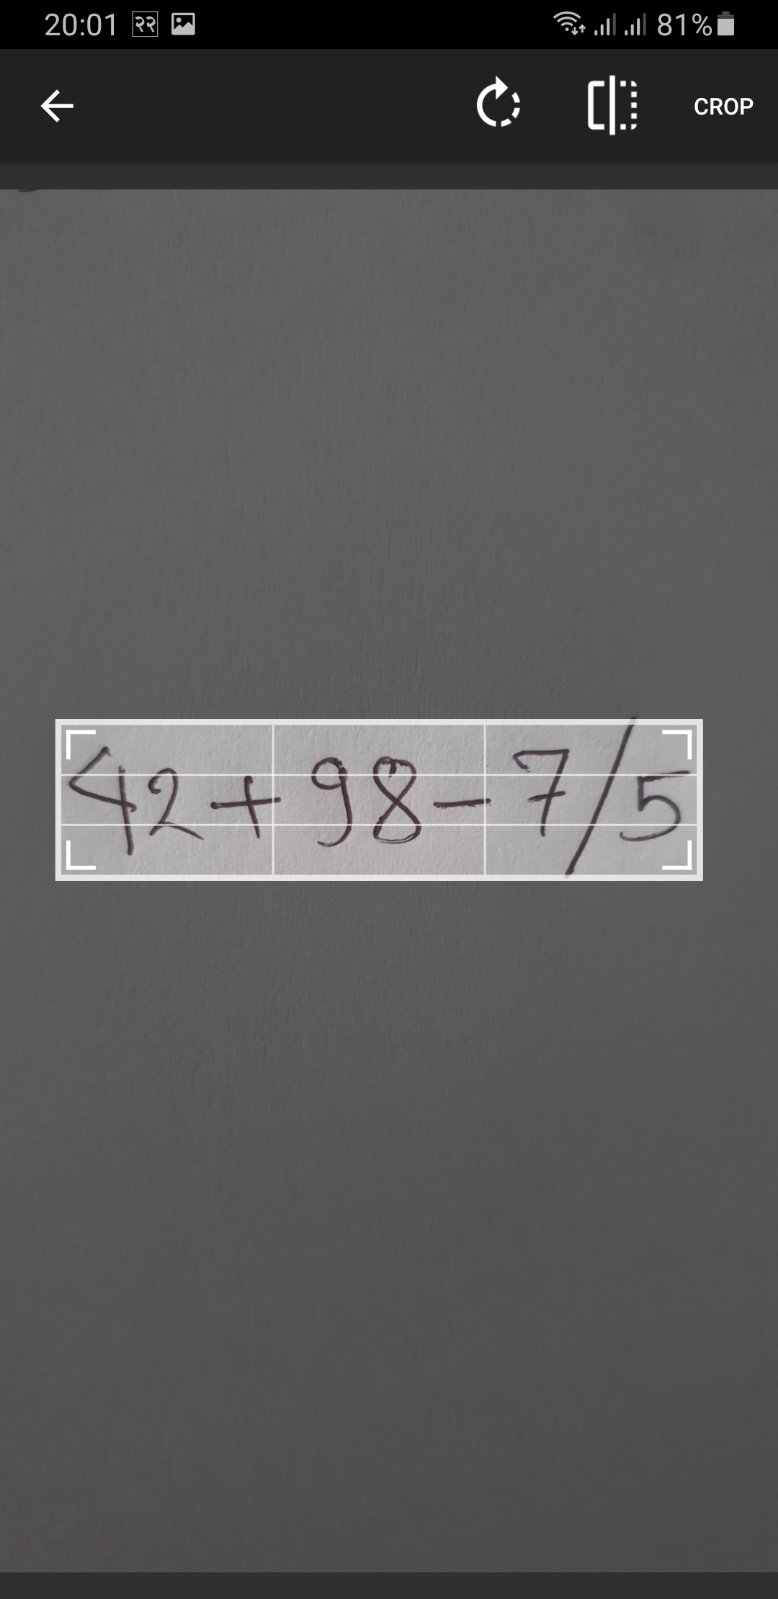 20:01 २२ 81%
CROP
42+98-7/5